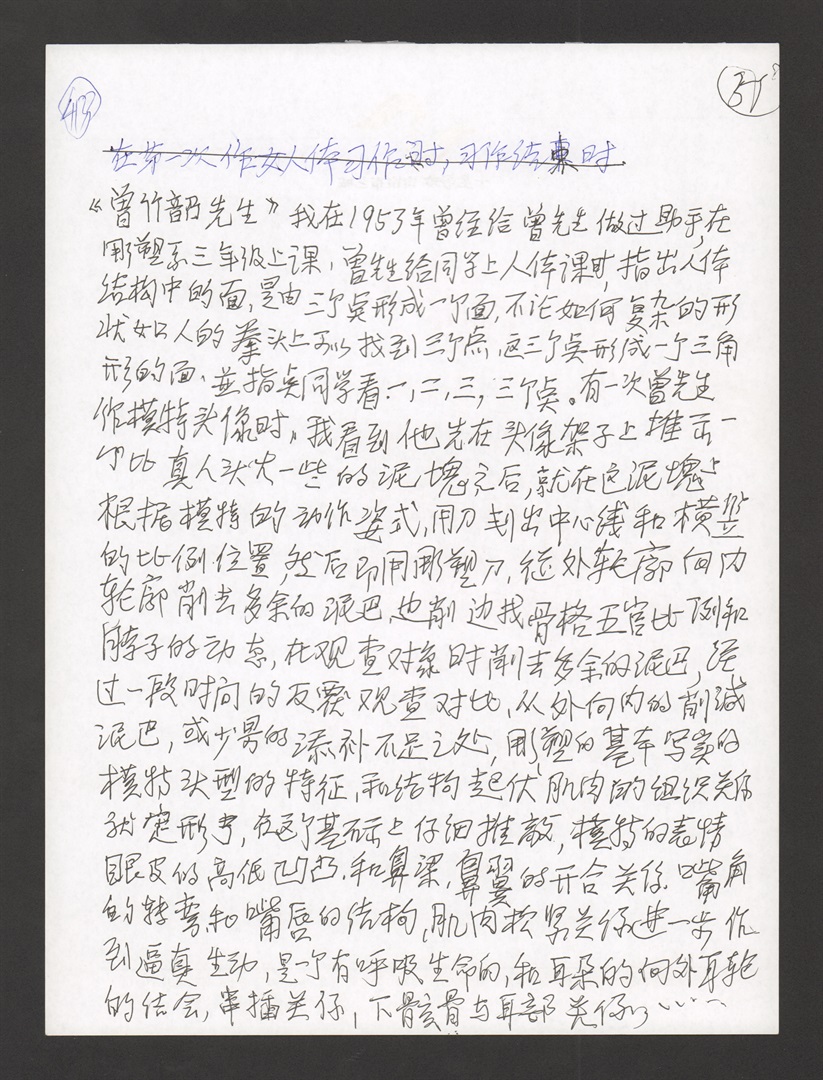 在第一次作女人体习作时，习作结束时
《曾竹韶先生》我在1953年曾经给曾先生做过助手，在
雕塑系三年级上课，曾先生给同学上人体课时，指出人体
结构中的面，是由三个点形成一个面，不论如何复杂的形
状如人的拳头上可以找到三个点，这三个点形成一个三角
形的面，并指点同学看，一，二，三，三个点。有一次曾先生
作模特头像时，我看到他先在头像架子上推出一
个比真人头大一些的泥塊之后，就在这泥塊上
根据模特的动作姿式，用刀划出中心线和横竖
的比例位置，然后即用雕塑刀，从外轮廓向内
轮廓削去多余的泥巴，边削边找骨格五官比例和
脖子的动态，在观查对象时削去多余的泥巴，经
过一段时间的反覆观查对比，从外向内的削减
泥巴，或少男的添补不足之处，雕塑的基本写实的
模特头型的特征，和结构起伏，肌肉的组织关係
定形，在这个基础上仔细推敲，模特的表情
眼皮的高低凹凸，和鼻梁，鼻翼的开合关係，嘴角
的转弯和嘴唇的结构，肌肉松紧关係进一步作
到逼真生动，是一个有呼吸生命的，和耳朵的内外耳轮
的结合，串插关係，下骸骨与耳部关係……